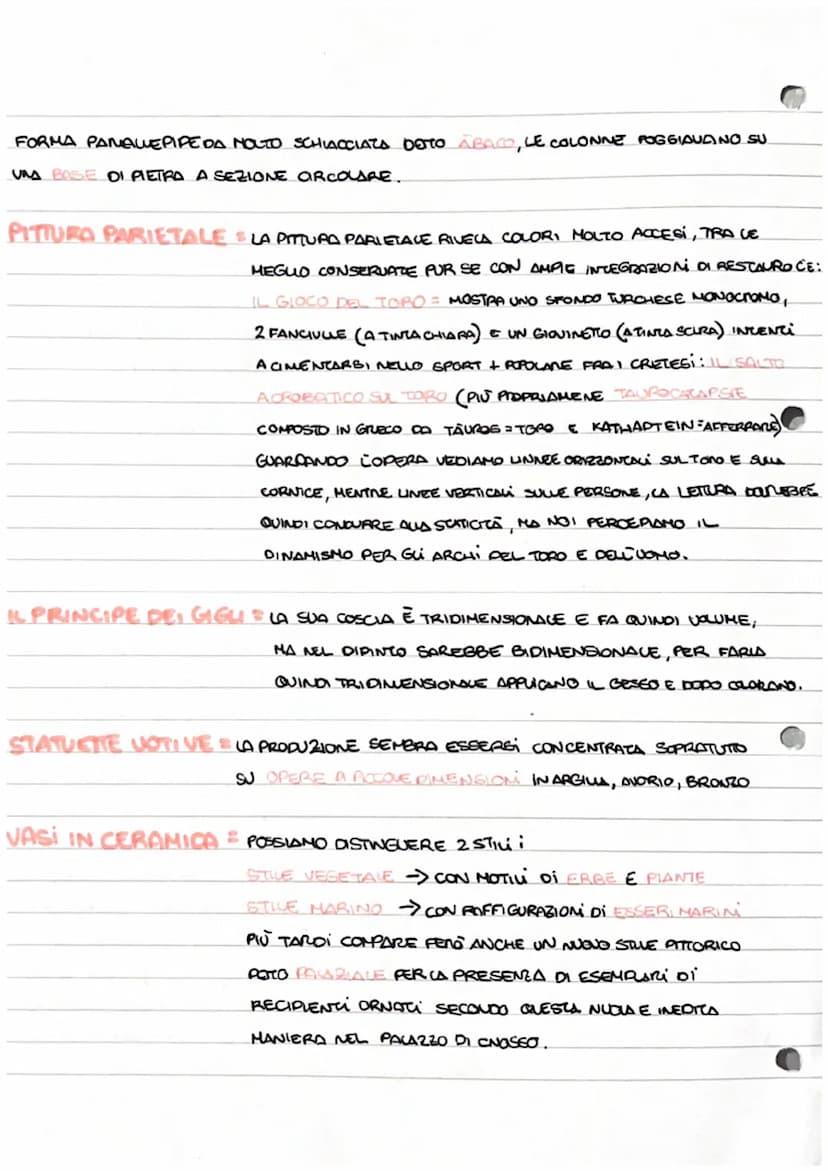 FORMA PARALLEPIPEDA MOLTO SCHIACCIATA DETTO ÀBACO, LE COLONNE POGGIAVANO SU
UNA BASE DI PIETRA A SEZIONE CIRCOLARE.
PITTURA PARIETALE = LA PITTURA PARIETALE RIVELA COLORI MOLTO ACCESI, TRA LE
MEGLIO CONSERVATE PUR SE CON AMPIE INTEGRAZIONI DI RESTAURO C'E:
IL GIOCO DEL TORO = MOSTRA UNO SFONDO TURCHESE MONOCROMO,
2 FANCIULLE (A TINTA CHIARA) E UN GIOVINETTO (A TINTA SCURA) INTENTI
A CIMENTARSI NELLO SPORT + POPOLARE FRA I CRETESI: IL SALTO
ACROBATICO SUL TORO (PIÙ PROPRIAMENE TAUROCATAPSIE
COMPOSTO IN GRECO DA TÀUROS = TORO E KATHAPTEIN = AFFERRARE)
GUARDANDO L'OPERA VEDIAMO LINNEE ORIZZONTALI SUL TORO E SULLA
CORNICE, MENTRE LINEE VERTICALI SULLE PERSONE, LA LETTURA DOVREBBE
QUINDI CONDURRE ALLA STATICITÀ, MA NOI PERCEPIAMO IL
DINAMISMO PER GLI ARCHI DEL TORO E DELL'UOMO.
IL PRINCIPE DEI GIGLI = LA SUA COSCIA È TRIDIMENSIONALE E FA QUINDI VOLUME,
MA NEL DIPINTO SAREBBE BIDIMENSIONALE, PER FARLA
QUINDI TRIDIMENSIONALE APPLICANO IL GESSO E DOPO COLORANO.
STATUETTE VOTIVE = LA PRODUZIONE SEMBRA ESSERSI CONCENTRATA SOPRATUTTO
SU OPERE A PICCOLE DIMENSIONI IN ARGILLA, AVORIO, BRONZO
VASI IN CERAMICA = POSSIAMO DISTINGUERE 2 STILI:
STILE VEGETALE → CON MOTIVI DI ERBE E PIANTE
STILE MARINO → CON RAFFIGURAZIONI DI ESSERI MARINI
PIÙ TARDI COMPARE PERÒ ANCHE UN NUOVO STILE PITTORICO
DETTO PALAZIALE PER LA PRESENZA DI ESEMPLARI DI
RECIPIENTI ORNATI SECONDO QUESTA NUOVA E INEDITA
MANIERA NEL PALAZZO DI CNOSSO.